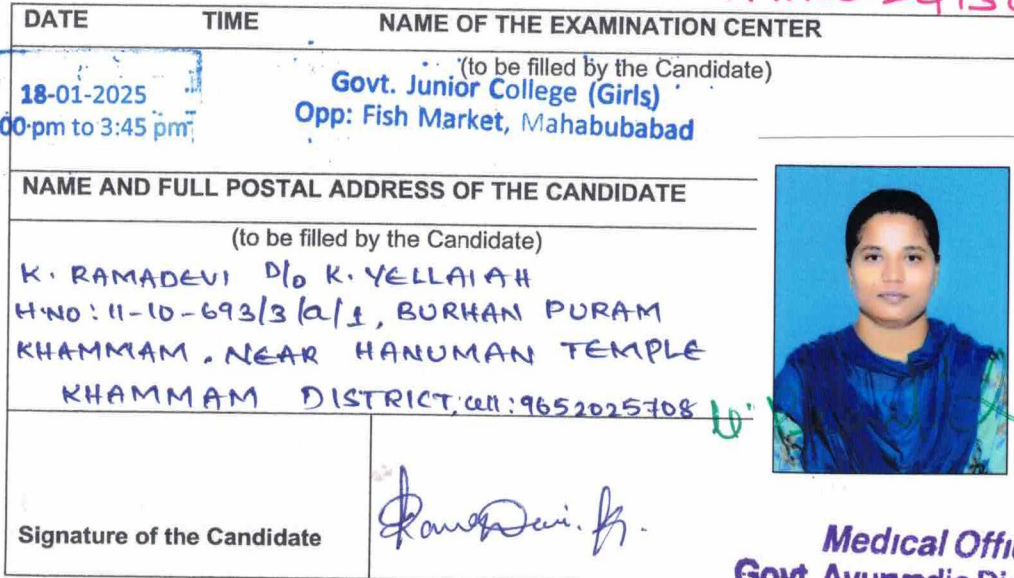 DATE TIME NAME OF THE EXAMINATION CENTER
(to be filled by the Candidate)
18-01-2025
00 pm to 3:45 pm
Govt. Junior College (Girls)
Opp: Fish Market, Mahabubabad
NAME AND FULL POSTAL ADDRESS OF THE CANDIDATE
(to be filled by the Candidate)
K. RAMADEVI D/o K. YELLAIAH
H.NO: 11-10-693/3/a/1, BURHAN PURAM
KHAMMAM. NEAR HANUMAN TEMPLE
KHAMMAM DISTRICT, cell: 9652025708
Signature of the Candidate
RamaDevi. K.
Medical Offi
Govt.